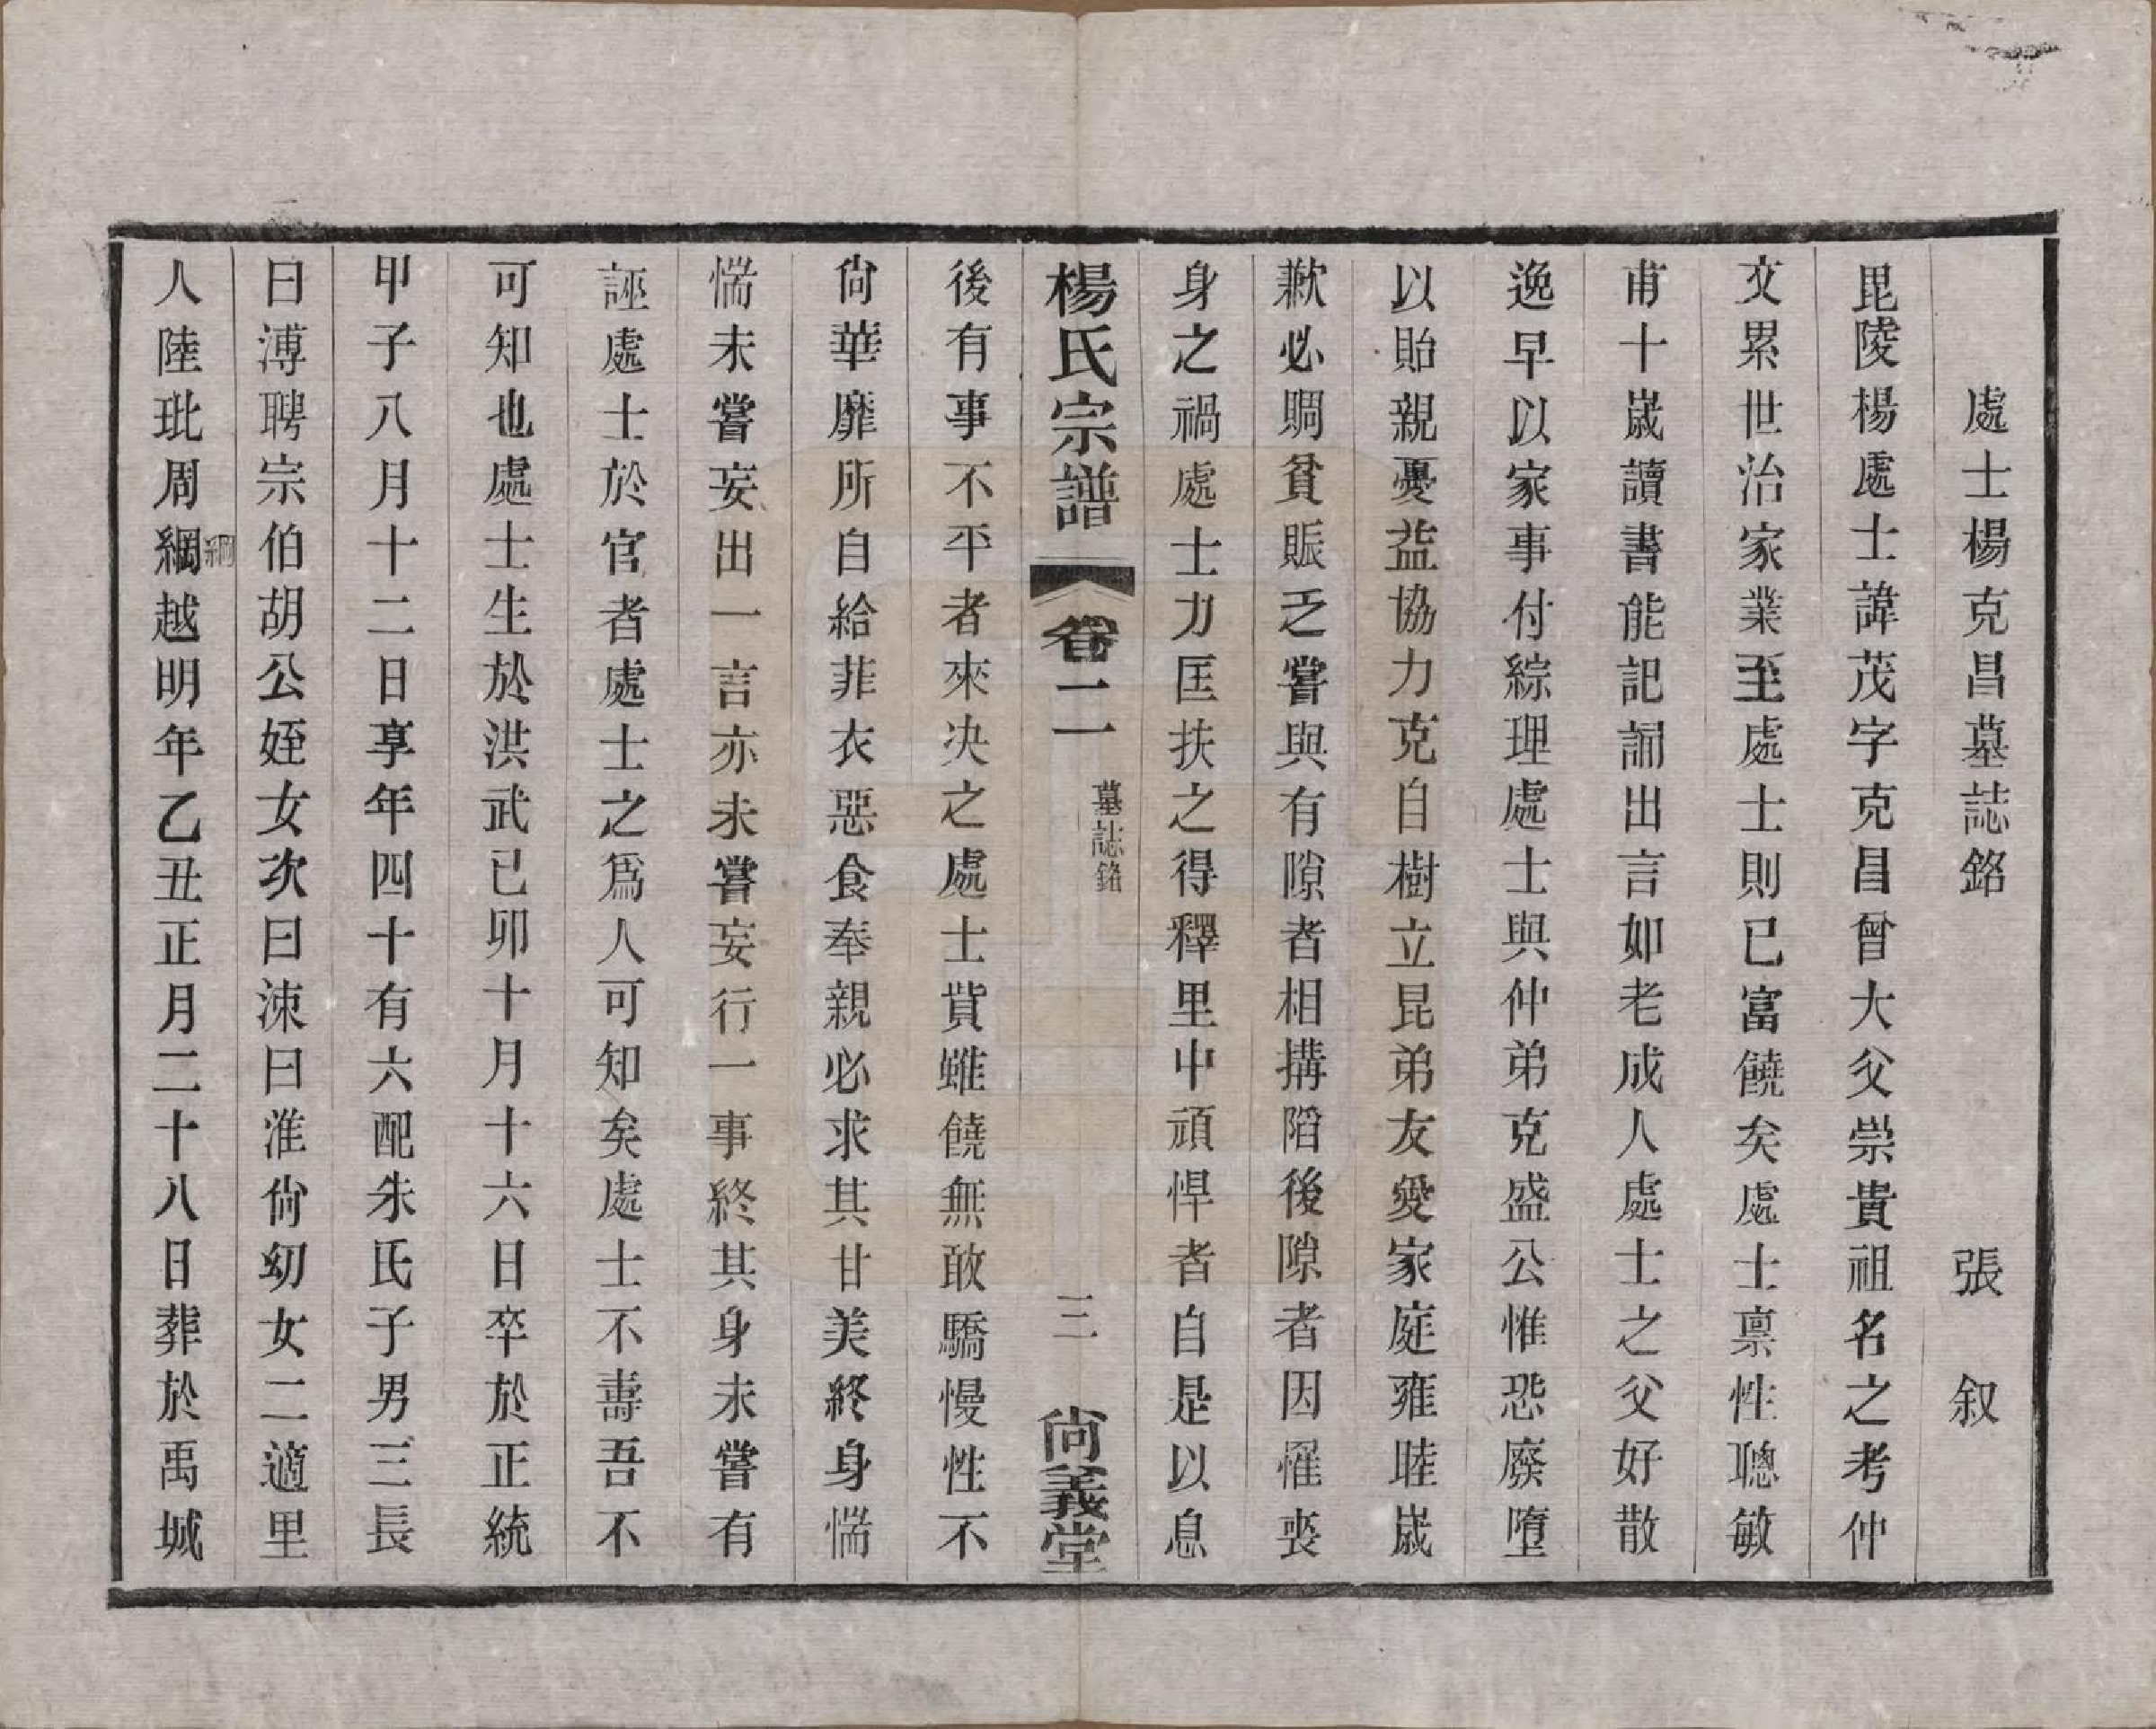 處士楊克昌墓誌銘　張　叙
毘陵楊處士諱茂字克昌曾大父崇貴祖名之考仲
文累世治家業至處士則已富饒矣處士禀性聰敏
甫十歲讀書能記誦出言如老成人處士之父好散
逸早以家事付綜理處士與仲弟克盛公惟恐廢墮
以貽親憂益協力克自樹立昆弟友愛家庭雍睦歲
歉必賙貧賑乏嘗與有隙者相搆陷後隙者因罹喪
身之禍處士力匡扶之得釋里中頑悍者自是以息
楊氏宗譜　卷二　墓誌銘　三　尙義堂
後有事不平者來决之處士貲雖饒無敢驕慢性不
尙華靡所自給菲衣惡食奉親必求其甘美終身惴
惴未嘗妄出一言亦未嘗妄行一事終其身未嘗有
誣處士於官者處士之爲人可知矣處士不壽吾不
可知也處士生於洪武已卯十月十六日卒於正統
甲子八月十二日享年四十有六配朱氏子男三長
曰溥聘宗伯胡公姪女次曰涑曰淮尙幼女二適里
人陸玭周綱綱越明年乙丑正月二十八日葬於禹城